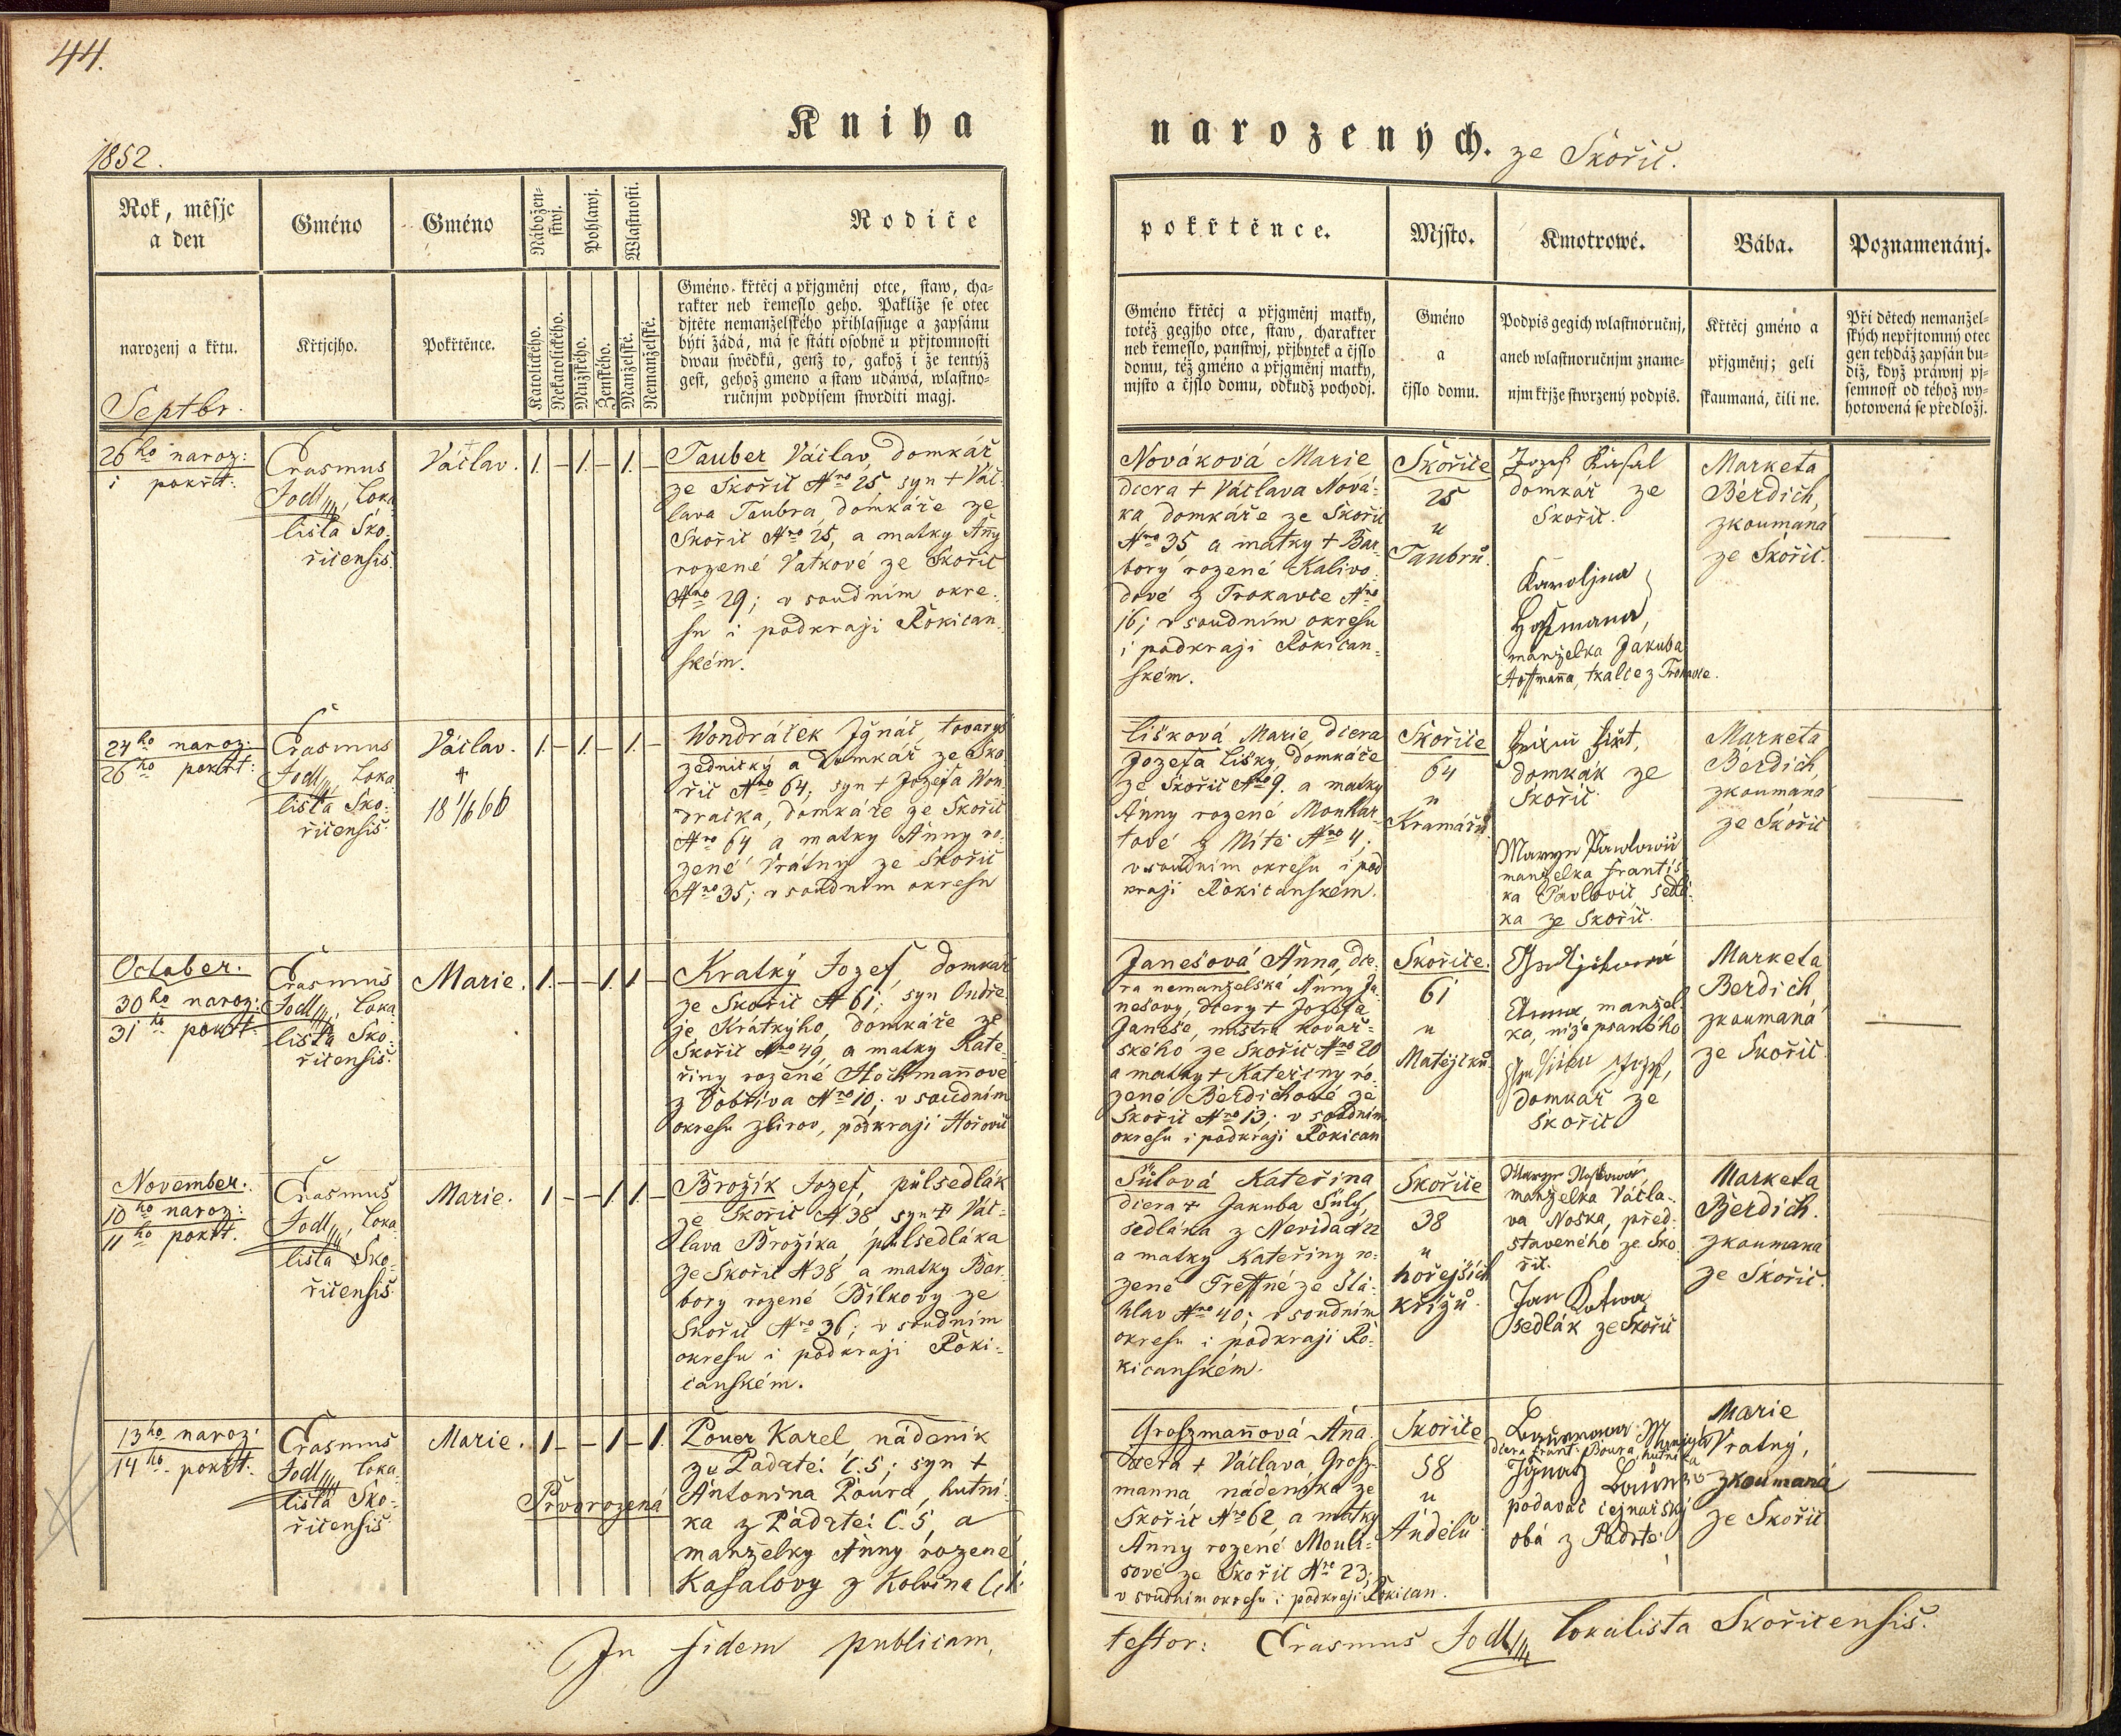 44.
Kniha
narozených. ze Skořič.
1852.
Rok, měsjc
a den
narozenj a křtu.
Septbr.
Gméno
Křtjcjho.
Gméno
Pokřtěnce.
Nábožen-
stwj.
Pohlawj.
Wlastnosti.
Katolického.
Nekatolického.
Mužského.
Ženského.
Manželské.
Nemanželské.
Rodiče
Gméno křtěcj a přjgměnj otce, staw, cha-
rakter neb řemeslo geho. Pakliže se otec
djtěte nemanželského přihlassuge a zapsánu
býti žádá, má se státi osobně u přjtomnosti
dwau swědků, genž to, gakož i že tentýž
gest, gehož gmeno a staw udáwá, wlastno-
ručnjm podpisem stwrditi magj.
pokřtěnce.
Gméno křtěcj a přjgměnj matky,
totéž gegjho otce, staw, charakter
neb řemeslo, panstwj, přjbytek a čjslo
domu, též gméno a přjgměnj matky,
mjsto a čjslo domu, odkudž pocházj.
Mjsto.
Gméno
a
čjslo domu.
Kmotrowé.
Podpis gegich wlastnoručnj,
aneb wlastnoručnjm zname-
njm křjže stwrzený podpis.
Bába.
Křtěcj gméno a
přjgměnj; geli
skaumaná, čili ne.
Poznamenánj.
Při dětech nemanžel-
ských nepřjtomný otec
gen tehdáž zapsán bu-
diž, když práwnj pj-
semnost od téhož wy-
hotowená se předložj.
26ho naroz:
i pokřt:
Erasmus
Jodl, Loka
lista Sko-
řicensis.
Václav. 1. – 1. – 1. –
Tauber Václav, domkář
ze Skořic Nro 25 syn + Vác-
lava Taubra, domkáře ze
Skořic Nro 25, a matky Anny
rozené Vatkové ze Skořic
Nro 29; v soudním okre-
su i podkraji Rokican-
ském.
Nováková Marie
dcera + Václava Nová-
ka domkáře ze Skořic
Nro 35 a matky + Bar-
bory rozené Kalivo-
dové z Trokavce Nro
16; v soudním okresu
i podkraji Rokican-
ském.
Skořice
25
u
Taubrů.
Jozef
domkář ze
Skořic.
Karoljna
manželka Jakuba
Hoffmanna, tkalce z Trokavce.
Marketa
Berdich,
zkoumaná
ze Skořic.
24ho naroz:
26ho pokřt:
Erasmus
Jodl, Loka
lista Sko-
řicensis.
Václav. 1. – 1. – 1. –
+
18 1/6 66
Wondráček Ignác, tovaryš
zednický a domkář ze Sko
řic Nro 64; syn + Jozefa Won
dráčka, domkáře ze Skořic
Nro 64 a matky Anny ro-
zené Vrátný ze Skořic
Nro 35; v soudním okresu
Lišková Marie dcera
Jozefa Lišky, domkáře
ze Skořic Nro 9. a matky
Anny rozené
tové z Mítě Nro 4;
v soudním okresu i pod
kraji Rokicanském.
Skořice
64
u
Kramářů.
domkář ze
Skořic.
Maryn Pawlowic
manželka Františ-
ka Pavlovic sedlá-
ka ze Skořic.
Marketa
Berdich,
zkoumaná
ze Skořic
October:
30ho naroz:
31ho pokřt:
Erasmus
Jodl, Loka
lista Sko-
řicensis.
Marie. 1. – – 1. 1. –
Kratký Jozef, domkář
ze Skořic N 61; syn Ondře
je Krátkýho, domkáře ze
Skořic Nro 49, a matky Kate-
řiny rozené Hochmannove
z Dobříva Nro 10; v soudním
okresu Zbirov, podkraji Hořovic
Janešová Anna, dce-
ra nemanželská Anny Ja-
nešovy, dcery + Jozefa
Janeše, mistra kovář-
ského ze Skořic Nro 20
a matky + Kateřiny ro-
zené Berdichové ze
Skořic Nro 13; v soudním
okresu i podkraji Rokican
Skořice.
61
u
Matějčků
Anna, manžel-
ka, níže psaného
domkář ze
Skořic
Marketa
Berdich
zkoumaná
ze Skořic
November:
10ho naroz:
11ho pokřt.
Erasmus
Jodl, Loka
lista Sko-
řicensis.
Marie. 1 – – 1. 1. –
Brožík Jozef, půlsedlák
ze Skořic N 38 syn + Vác-
lava Brožíka, půlsedláka
ze Skořic N 38, a matky Bar-
bory rozené Bílkovy ze
Skořic Nro 36; v soudním
okresu i podkraji Roki-
canském.
Šůlová Kateřina
dcera + Jakuba Šůly,
sedláka z Nevida N 22
a matky Kateřiny ro-
zené ze Stá-
hlav Nro 40; v soudním
okresu i podkraji Ro-
kicanském.
Skořice
38
u
hořejších
křížů.
manželka Václa-
va Noska, před-
staveného ze Sko-
řic.
Jan Kotwa
sedlák ze Skořic
Marketa
Berdich.
zkoumana
ze Skořic.
13ho naroz:
14ho pokřt:
Erasmus
Jodl, Loka
lista Sko-
řicensis
Marie. 1 – – 1 – 1.
Prvorozená
Pouer Karel, nádeník
z Padrtě: č. 5; syn +
Antonína Poura, hutní-
ka z Padrtě: č. 5, a
manželky Anny rozené
Kasalovy z Kolvína č. 1:
Groszmannová Anna.
Dcera + Václava Grosz-
manna nádeníka ze
Skořic Nro 62, a matky
Anny rozené Moula-
sové ze Skořic Nro 23;
v soudním okresu i podkraji Rokican.
Skořice
58
u
Andělů
dcera Frant. Poura, hutníka
Ignaz
podavač cejnařský
oba z Padrtě:
Marie
Vratný,
zkoumaná
ze Skořic
In fidem publicam,
testor: Erasmus Jodl, Lokalista Skořicensis.